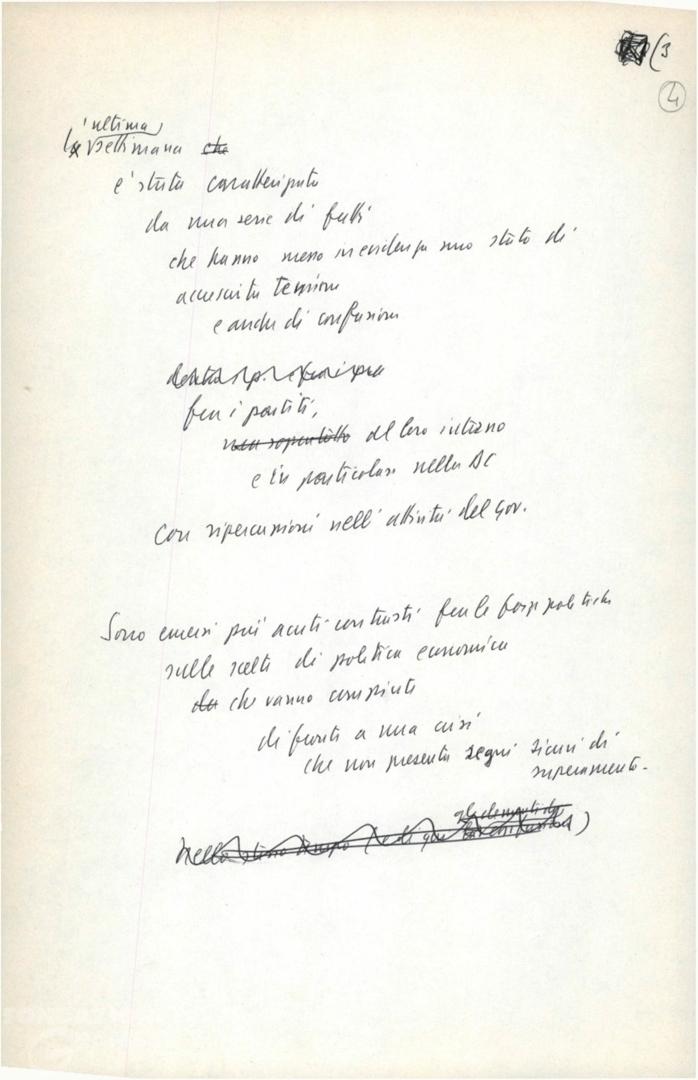 (3
4
l'ultima
settimana che
è stata caratterizzata
da una serie di fatti
che hanno messo in evidenza uno stato di
accresciuta tensione
e anche di confusione
fra i partiti,
ma soprattutto al loro interno
e in particolare nella DC
con ripercussioni nell'attività del gov.
Sono emersi più acuti contrasti fra le forze politiche
sulle scelte di politica economica
che vanno compiute
di fronte a una crisi
che non presenta segni sicuri di
superamento.
Nello stesso tempo (